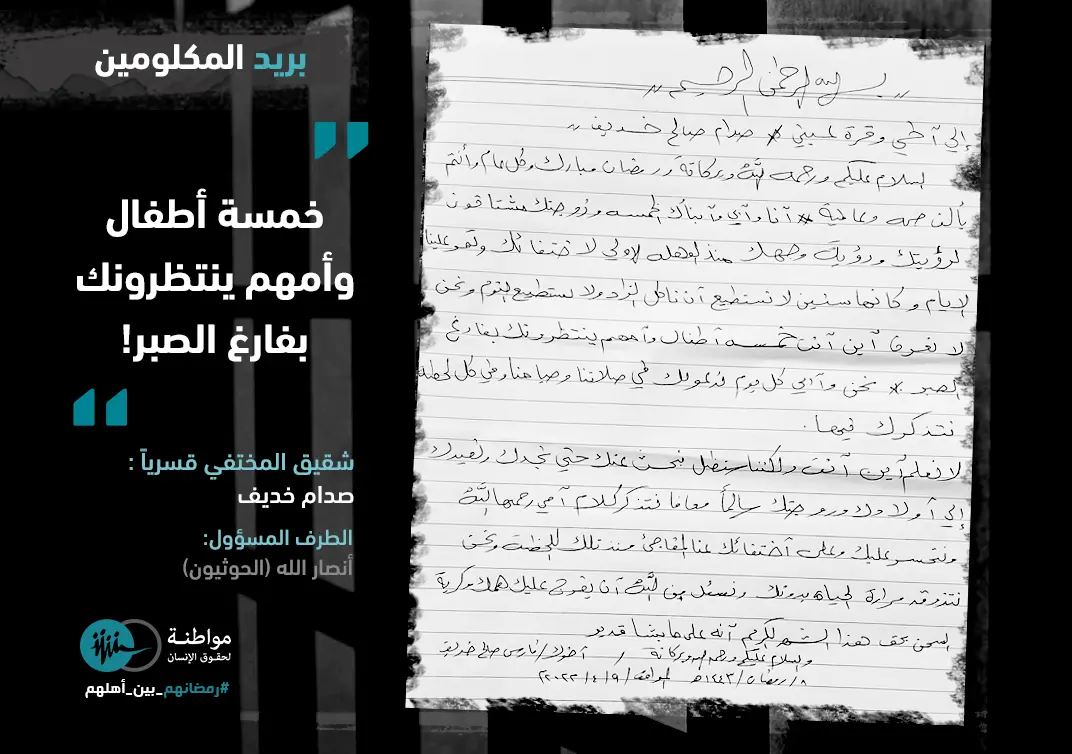 بريد المكلومين
خمسة أطفال
وأمهم ينتظرونك
بفارغ الصبر!
شقيق المختفي قسرياً :
صدام خديف
الطرف المسؤول:
أنصار الله (الحوثيون)
مواطنة
لحقوق الإنسان
#رمضانهم_بين_أهلهم
بسم الله الرحمن الرحيم
إلى آخي وقرة عيني * صدام صالح خديف
السلام عليكم ورحمه الله وبركاتة ورمضان مبارك وكل عام وأنتم
بألف صحه وعافية * آنا وآبي وآبنائك الخمسه وزوجتك مشتاقون
لرؤيتك ورؤية وجهك منذ الوهله الاولى لاختفائك وتمر علينا
الايام وكانها سنين لا نستطيع آن ناكل الزاد ولا نستطيع النوم ونحن
لا نعرف آين آنت خمسه آطفال وآمهم ينتظرونك بفارغ
الصبر * نحن وآبي كل يوم ندعولك في صلاتنا وصباحنا وفي كل لحظه
نتذكرك فيها .
لا نعلم آين آنت ولكننا سنظل نبحث عنك حتى نجدك ونعيدك
إلى آولادك وزوجتك سالماً معافا نتذكر كلام آمي رحمها الله
ونتحسر عليك وعلى آختفائك عنا المفاجئ منذ تلك اللحظة ونحن
نتذوقه مرارة الحياه بدونك ونسئل من الله آن يفرج عليك همك وكربة
السجن بحق هذا الشهر الكريم آنه على ما يشا قدير
والسلام عليكم ورحمه الله وبركاتة / آخوك / فارس صالح خديف
٨/رمضان/١٤٤٣هـ الموافق/٩/٤/٢٠٢٢